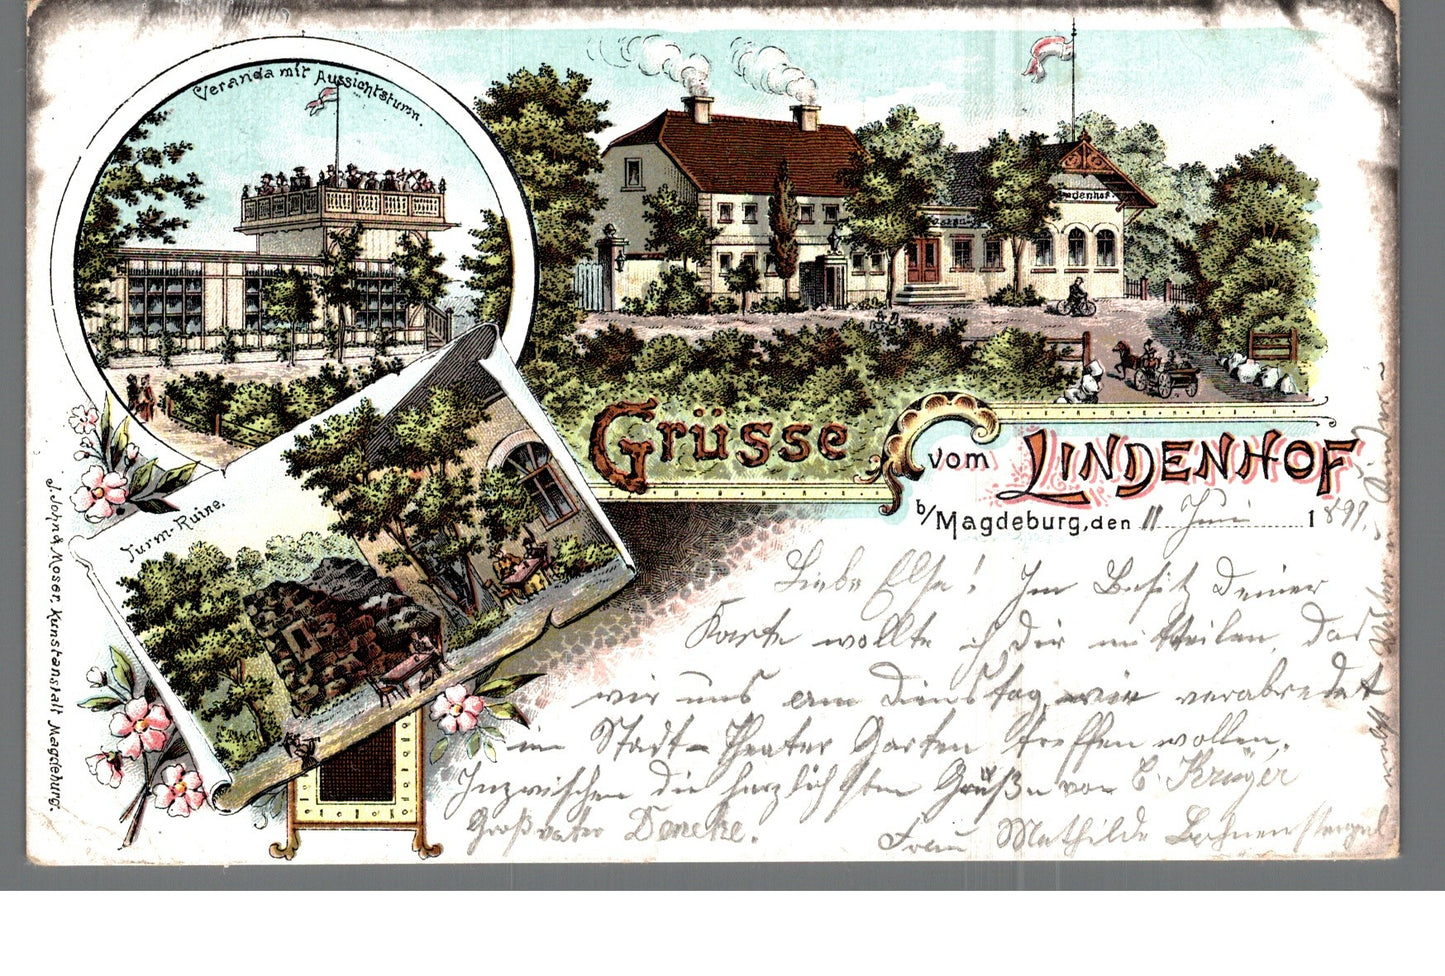 Veranda mit Aussichtsturm.
Lindenhof
Grüsse vom LINDENHOF
b/Magdeburg, den 11 Juni 1899.
Turm-Ruine.
J. John & Moser, Kunstanstalt Magdeburg.
Liebe Else! Im Besitz Deiner
Karte wollte ich Dir mitteilen, das
wir uns am Dienstag wie verabredet
im Stadt-Theater Garten treffen wollen.
Inzwischen die herzlichsten Grüße von E. Krüger
Großvater Deneke.
Frau Mathilde